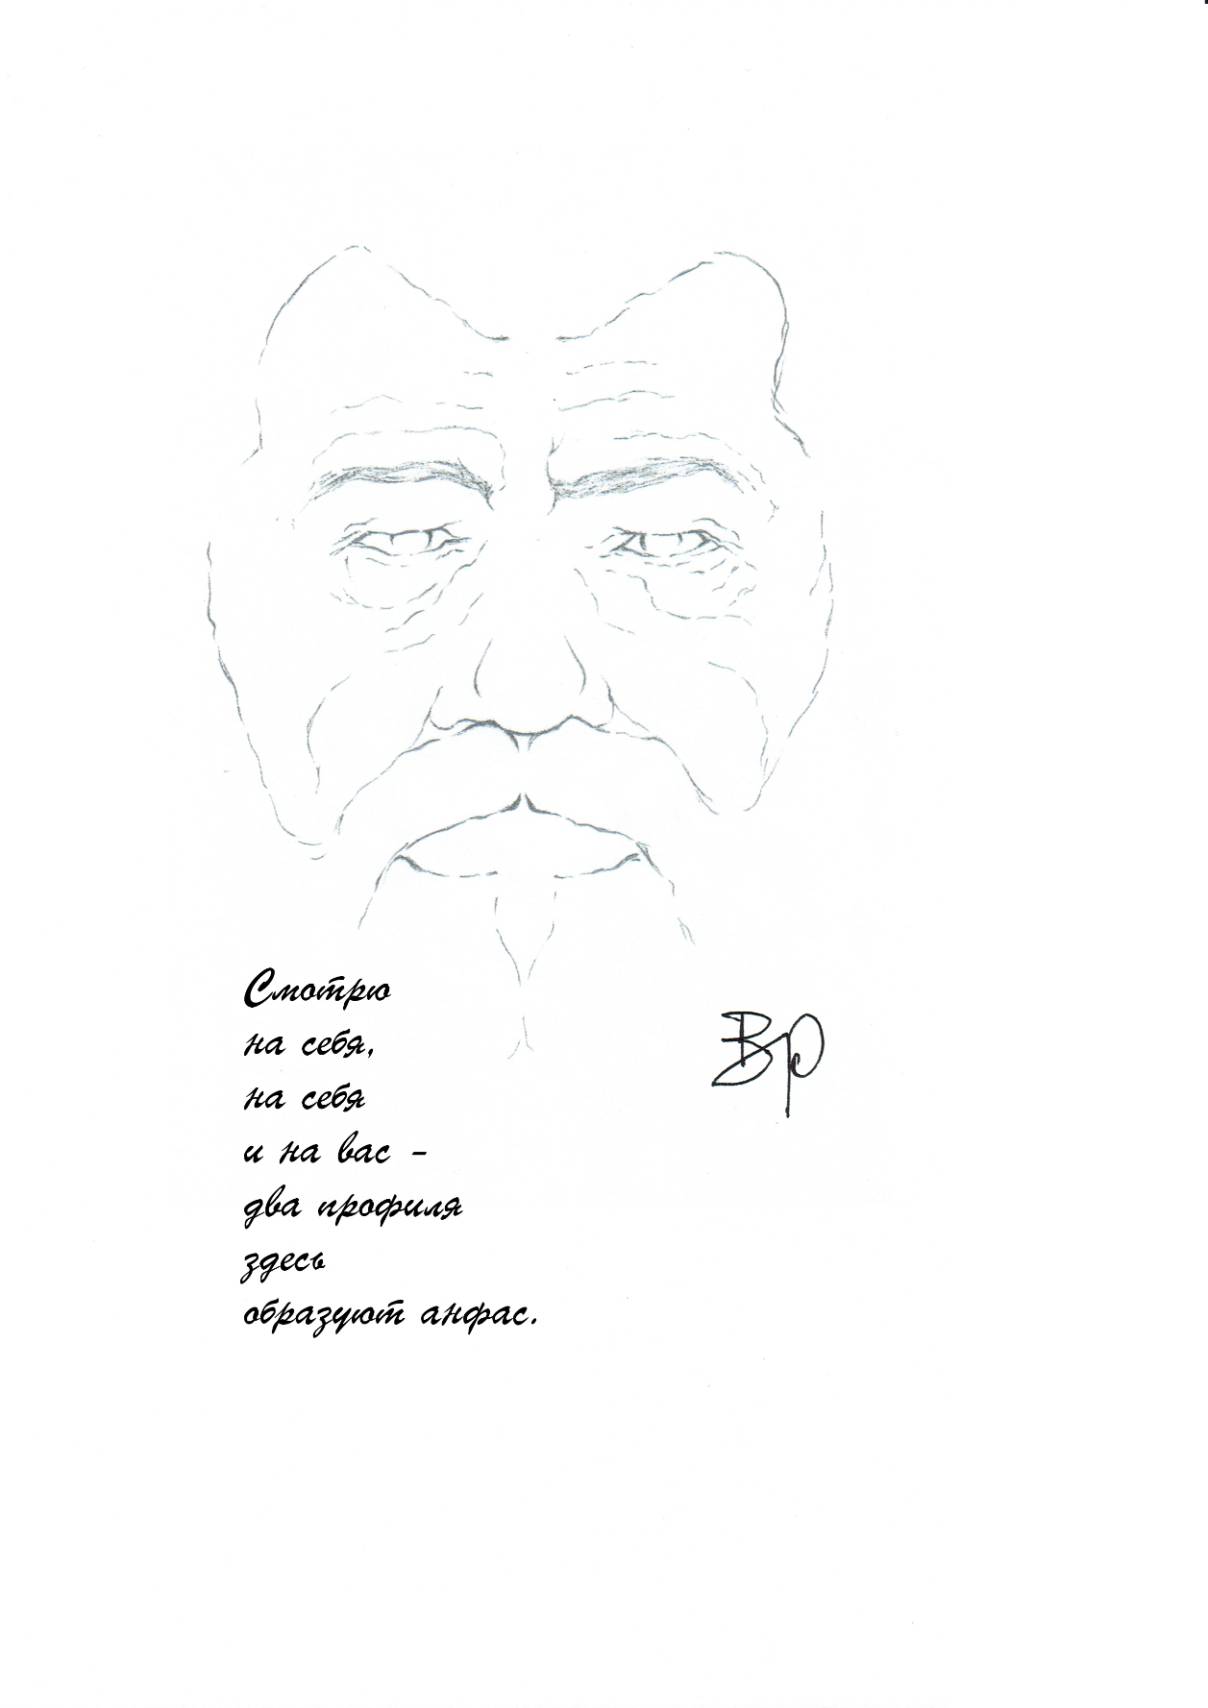 Смотрю
на себя,
на себя
и на вас -
два профиля
здесь
образуют анфас.
ВР